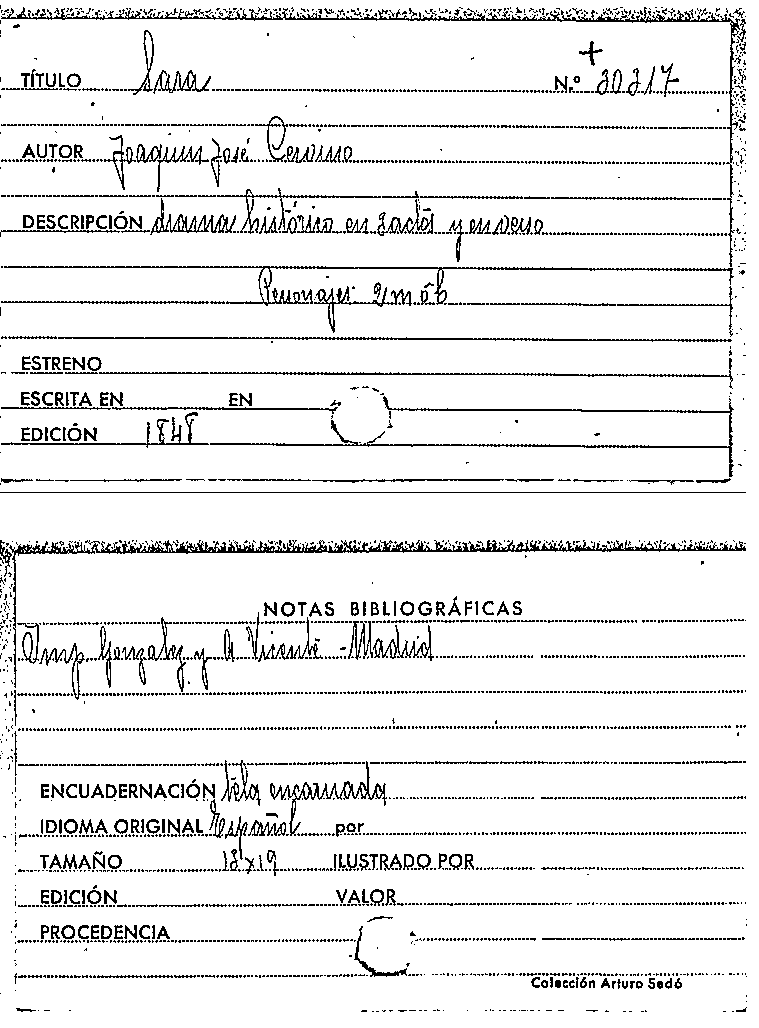 +
TÍTULO Sara N.º 30317
AUTOR Joaquin José Cervino
DESCRIPCIÓN drama histórico en 3 actos y en verso
Personajes: 2 m 6 h
ESTRENO
ESCRITA EN EN
EDICIÓN 1848
NOTAS BIBLIOGRÁFICAS
Imp Gonzalez y A Vicente - Madrid
ENCUADERNACIÓN tela encarnada
IDIOMA ORIGINAL Español por
TAMAÑO 13x19 ILUSTRADO POR
EDICIÓN VALOR
PROCEDENCIA
Colección Arturo Sedó